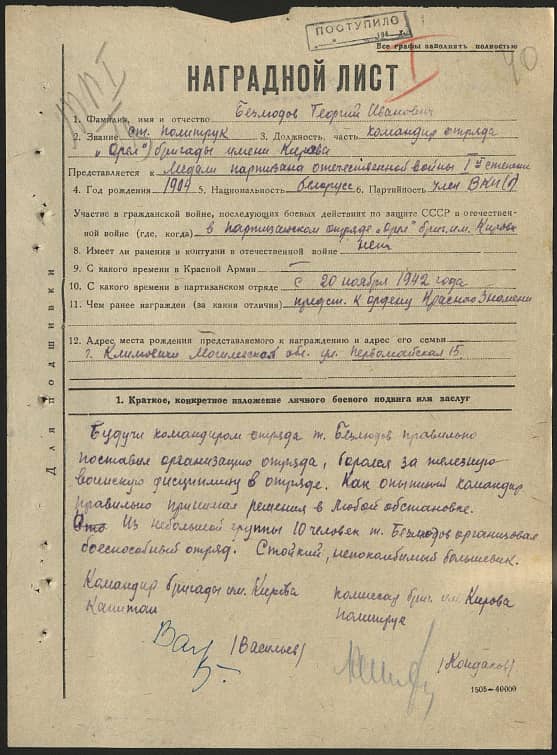 ПОСТУПИЛО
Все графы заполнять полностью
40
НАГРАДНОЙ ЛИСТ
1. Фамилия, имя и отчество Безмодов Георгий Иванович
2. Звание ст. политрук 3. Должность, часть командир отряда
„Орел“ бригады имени Кирова
Представляется к Медали партизана отечественной войны I й степени
4. Год рождения 1904 5. Национальность белорусс 6. Партийность член ВКП(б)
Участие в гражданской войне, последующих боевых действиях по защите СССР и отечествен-
ной войне (где, когда) в партизанском отряде „Орел“ бриг. им. Кирова
8. Имеет ли ранения и контузии в отечественной войне нет
9. С какого времени в Красной Армии —
10. С какого времени в партизанском отряде с 20 ноября 1942 года
11. Чем ранее награжден (за какия отличия) предст. к ордену Красное Знамени
12. Адрес места рождения представляемого к награждению и адрес его семьи
г. Климовичи Могилевская обл. ул. Первомайская 15.
Для подшивки
1. Краткое, конкретное изложение личного боевого подвига или заслуг
Будучи командиром отряда т. Безмодов правильно
поставил организацию отряда, боролся за железную
воинскую дисциплину в отряде. Как опытный командир
правильно принимал решения в любой обстановке.
Из небольшой группы 10 человек т. Безмодов организовал
боеспособный отряд. Стойкий, непоколбимый большевик.
Командир бригады им. Кирова
Капитан
(Васильев)
Комиссар бриг. им. Кирова
Политрук
(Кондаков)
1505—40000